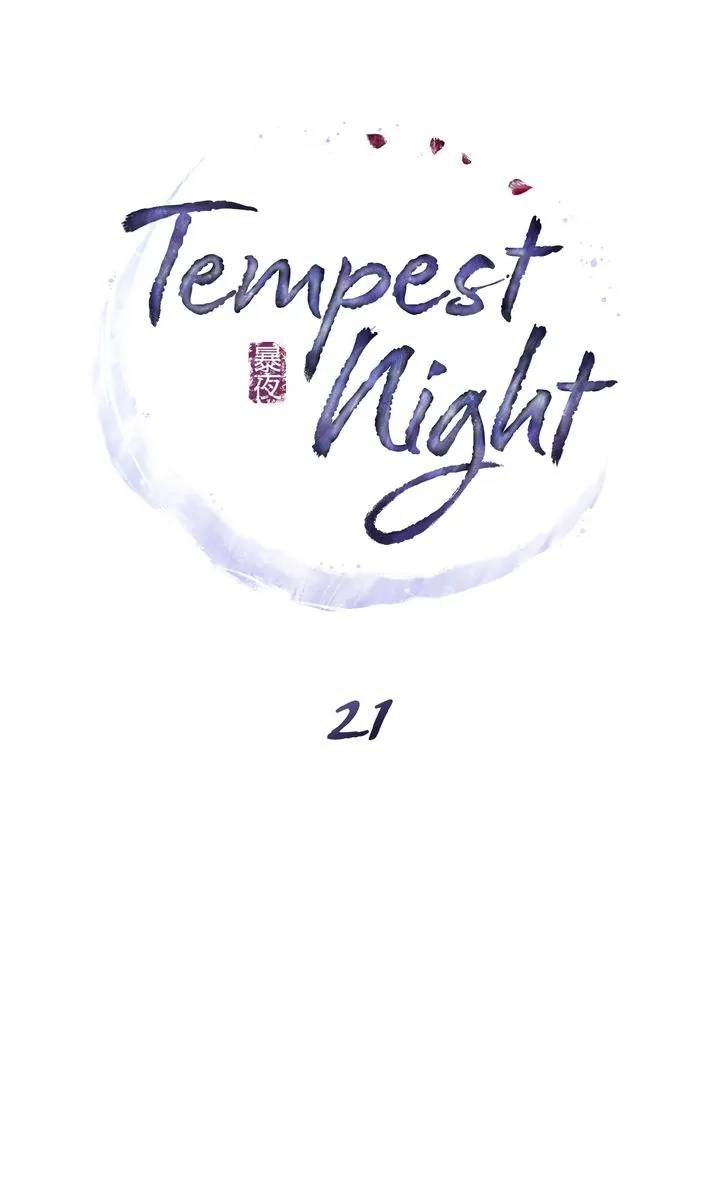 Tempest
暴夜
Night
21